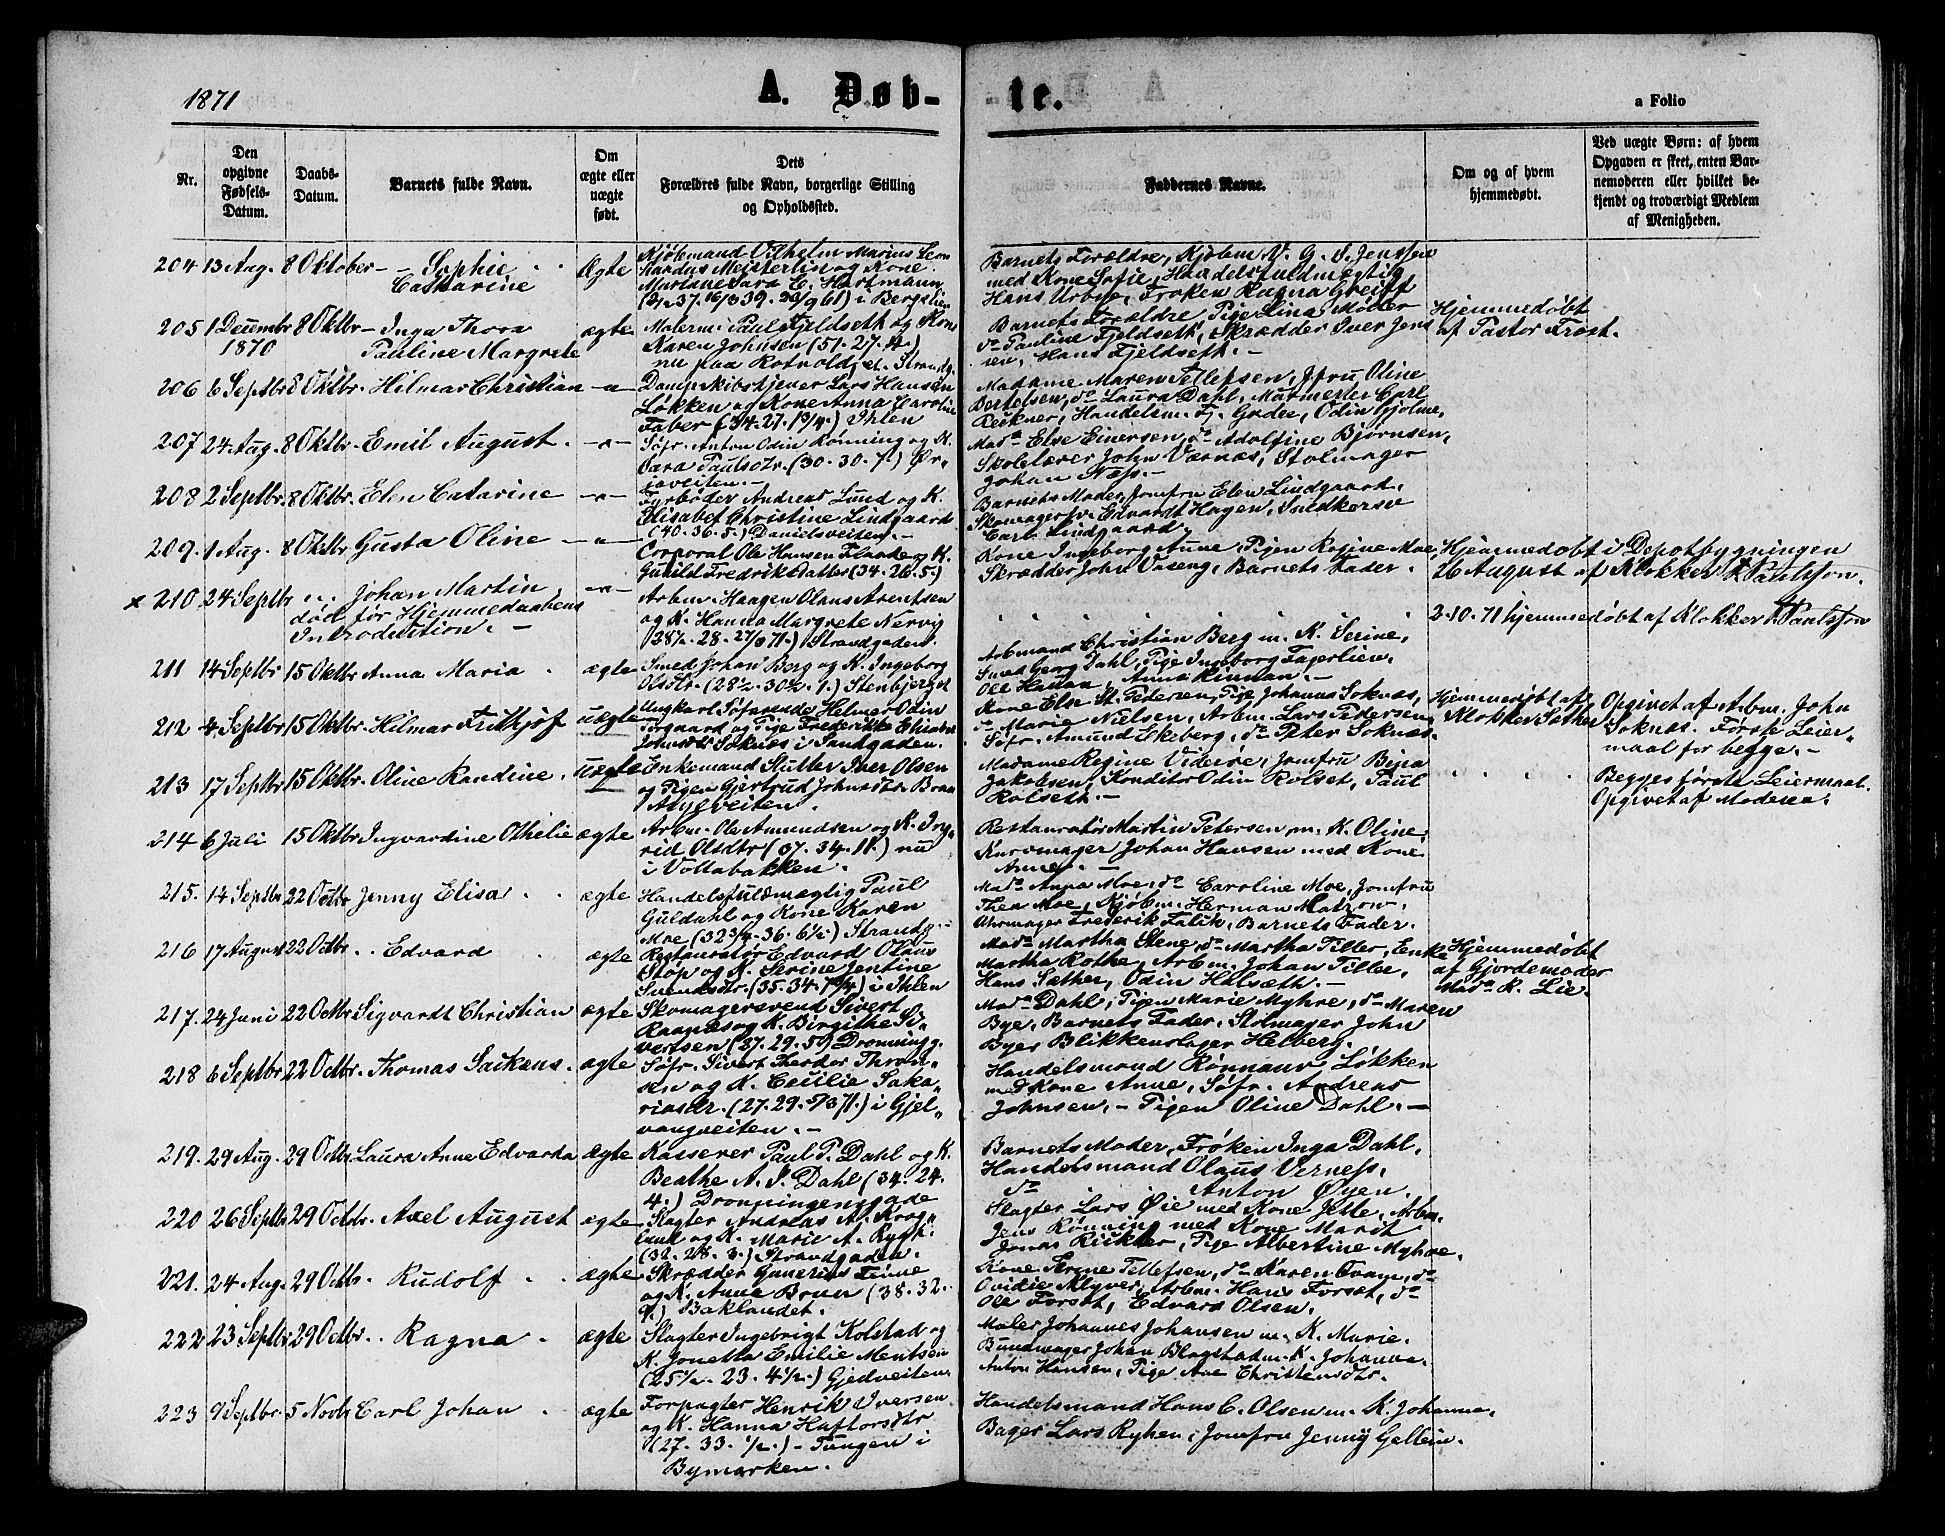 1871
A. Døb-
te.
a Folio
Nr.
Den opgivne Fødsels-Datum.
Daabs-Datum.
Barnets fulde Navn.
Om ægte eller uægte født.
Dets Forældres fulde Navn, borgerlige Stilling og Opholdssted.
Faddernes Navne.
Om og af hvem hjemmedøbt.
Ved uægte Børn: af hvem Opgaven er skeet, enten Barnemoderen eller hvilket bekjendt og troværdigt Medlem af Menigheden.
204 13 Aug. 8 Oktober - - Sophie Catharine Ægte
Kjøbmand Vilhelm Marius Leon
hardus Meisterlin og Kone
Mariane Sara E. Hartmann
i Bergslien
Barnets Forældre, Kjøbm. V. G. S. Jenssen
med Kone Sofie, Handelsfuldmægtig
Hans Urbye, Frøken Ragna Greift
205 1 Decembr 1870 8 Oktbr - Inga Thora Pauline Margrete ægte
Malerm. Paul Fjeldseth og Kone
Karen Johnsen (51. 27. 4)
nu paa Rotvold, et. Strandg.
Barnets Forældre, Pige Lina Møller
do Pauline Fjeldseth, Skrædder Iver Jen
sen, Hans Fjeldseth. -
Hjemmedøbt
af Pastor Frost.
206 6 Septbr 8 Oktbr. Hilmar Christian -"-
Dampskibstjener Lars Hansen
Løkken og Kone Anna Caroline
Faber (34. 27. 19/4) Ihlen
Madame Maren Tellefsen, Jfru Oline
Bertelsen, do Laura Dahl, Murmester Carl
Reckner, Handelsm. Fj. Gades, Odin Gjølme,
207 24 Aug. 8 Oktbr. Emil August. -"-
Søfr. Anton Odin Rønning og K.
Sara Paulsdtr. (30. 30. 7.) Ør
javeiten. -
Mad. Else Einersen, do Adolfine Bjørnsen,
Skolelærer John Værnæs, Stolmager
Johan Næss. -
208 2 Septbr. 8 Oktbr. Elen Catarine -"-
Fyrbøder Andreas Lund og K.
Elisabet Christine Lindgaard
(40. 36. 5.) Danielsveiten. -
Barnets Moder, Jomfru Elen Lindgaard,
Skomagersv. Edvardt Hagen, Guldkersv
Carl Lindgaard.
209. 1 Aug. 8 Oktbr Gusta Oline -"-
Corporal Ole Hansen Flaade og K.
Gunild Fredriksdatter (34. 26. 5.)
Kone Ingeborg Aune, Pigen Regine Moe,
Skrædder John Vaseng, Barnets Fader.
Hjemmedøbt i Depotbygningen
26 August af Klokker F. Paulsson.
x 210 24 Septbr Johan Martin, død før Hjemmedaabens Introduction. - -"-
Arbm. Haagen Olaus Arentsen
og K. Hanna Margrete Nervig
(28½. 28. 27/8 71.) Strandgaden.
2-10. 71 hjemmedøbt af Klokker F. Paulsson
211 14 Septbr 15 Oktbr Anna Maria ægte
Smed Johan Berg og K. Ingeborg
Olsdtr. (28½. 30½. 1.) Stenbjerget
Arbmand Christian Berg m. K. Serine,
Smed Georg Dahl, Pige Ingeborg Fagerlien,
Ole Hallan, Anna Rinnan. -
212 4 Septbr 15 Oktbr. Hilmar Frithjof uægte
Ungkarl Søfarende Helmer Odin
Torgaard og Pige Frederikke Elisabet
Johnsdtr Soknæs i Sandgaden.
Kone Else M. Pedersen, Pige Johanna Soknæs,
do Marie Nielsen, Arbm. Lars Pedersen
Søfr. Amund Ekeberg, do Peter Soknæs.
Hjemmedøbt af
Klokker Sather
Opgivet af Arbm. John
Soknæs. Første Leier
maal for begge. -
213 17 Septbr 15 Oktbr. Oline Randine. uægte
Enkemand Slutter Iver Olsen
og Pigen Gjertrud Johnsdtr. Bran
Alylveiten.
Madame Regine Videire, Jomfru Bina
Jakobsen, Konditor Odin Rolset, Paul
Rolseth. -
Begges første Leiermaal.
Opgivet af Moderen.
214 6 Juli 15 Oktbr Ingvardine Othelie ægte
Arbm. Ole Amundsen og K. Ing
rid Olsdtr (37. 34. 11.) nu
i Vollabakken.
Restauratør Martin Petersen m. K. Oline,
Kurvmager Johan Hansen med Kone
Anne. -
215. 14 Septbr 22 Octbr Jenny Elisa ægte
Handelsfuldmægtig Paul
Guldahl og Kone Karen
Moe (32¾. 36. 6½) Strandg. -
Mad. Anna Moe, do Caroline Moe, Jomfru
Thea Moe, Kjøbm. Herman Matzow,
Uhrmager Frederik Falik, Barnets Fader.
216 17 August 22 Octbr. Edvard ægte
Restauratør Edvard Olaus
Støp og K. Serine Jentine
Svendsdtr. (35. 34. 7¾) i Ihlen
Mad. Martha Stene, do Martha Tiller, Enke
Martha Rothe, Arbm. Johan Tiller,
Hans Sæther, Odin Halseth. -
Hjemmedøbt
af Gjordemoder
Mad. K. Lie.
217. 24 Juni 22 Octbr Sigvardt Christian ægte
Skomagersvend Sivert
Raanæs og K. Birgithe Si
vertsen (27. 29. 5) Dronningg.
Mad. Dahl, Pigen Marie Myhre, do Maren
Bye, Barnets Fader, Stolmager John
Bye, Blikkenslager Helberg.
218 6 Septbr 22 Octbr. Thomas Sackens. ægte
Søfr. Sivert Theodor Thron
sen og K. Cecilie Saka
riasdr. (27. 29. 5/3 71.) i Gjel
vangveiten. -
Handelsmand Rønnaug Løkken
med Kone Anne, Søfr. Andreas
Johnsen, - Pigen Oline Dahl. -
219. 29 Aug. 29 Octbr Laura Anne Edvarda ægte
Kasserer Paul P. Dahl og K.
Beathe A. S. Dahl (34. 24.
4.) Dronningensgade
Barnets Moder, Frøken Inga Dahl,
Handelsmand Olaus Verness,
do Anton Øyen.
220 26 Septbr 29 Octbr. Axel August ægte
Slagter Andreas A. Krog
lund og K. Marie A. Rygh.
(32. 28. 3.) Strandgaden.
Slagter Lars Øie med Kone Jette, Arbm.
Jens Rønning med Kone Marit
Jonas Rickter, Pige Albertine Myhre.
221. 24 Aug. 29 Octbr. Rudolf ægte
Skrædder Gunerius Finne
og K. Anna Brun (38. 32.
9.) Baklandet.
Kone Serine Tellefsen, do Karen Tvam, do
Ovidie Klyver, Arbm. Hans Forset, do
Ole Forset, Edvard Olsen.
222 23 Septbr 29 Octbr. Ragna ægte
Slagter Ingebrigt Kolstad og
K. Jonetta Emilie Mentsen
(25½. 23. 4½.) Gjedveiten.
Maler Johannes Johansen m. K. Marie.
Bundmager Johan Blogstad m. K. Johanna.
Anton Hansen, Pige Ane Christensdtr.
223 9 Septbr. 5 Novbr Carl Johan ægte
Forpagter Henrik Iversen
og K. Hanna Haftorsdtr
(27. 33. ½.) - Tungen i
Bymarken.
Handelsmand Hans C. Olsen m. K. Johanna.
Bager Lars Ryhen, Jomfru Jenny Gellein.